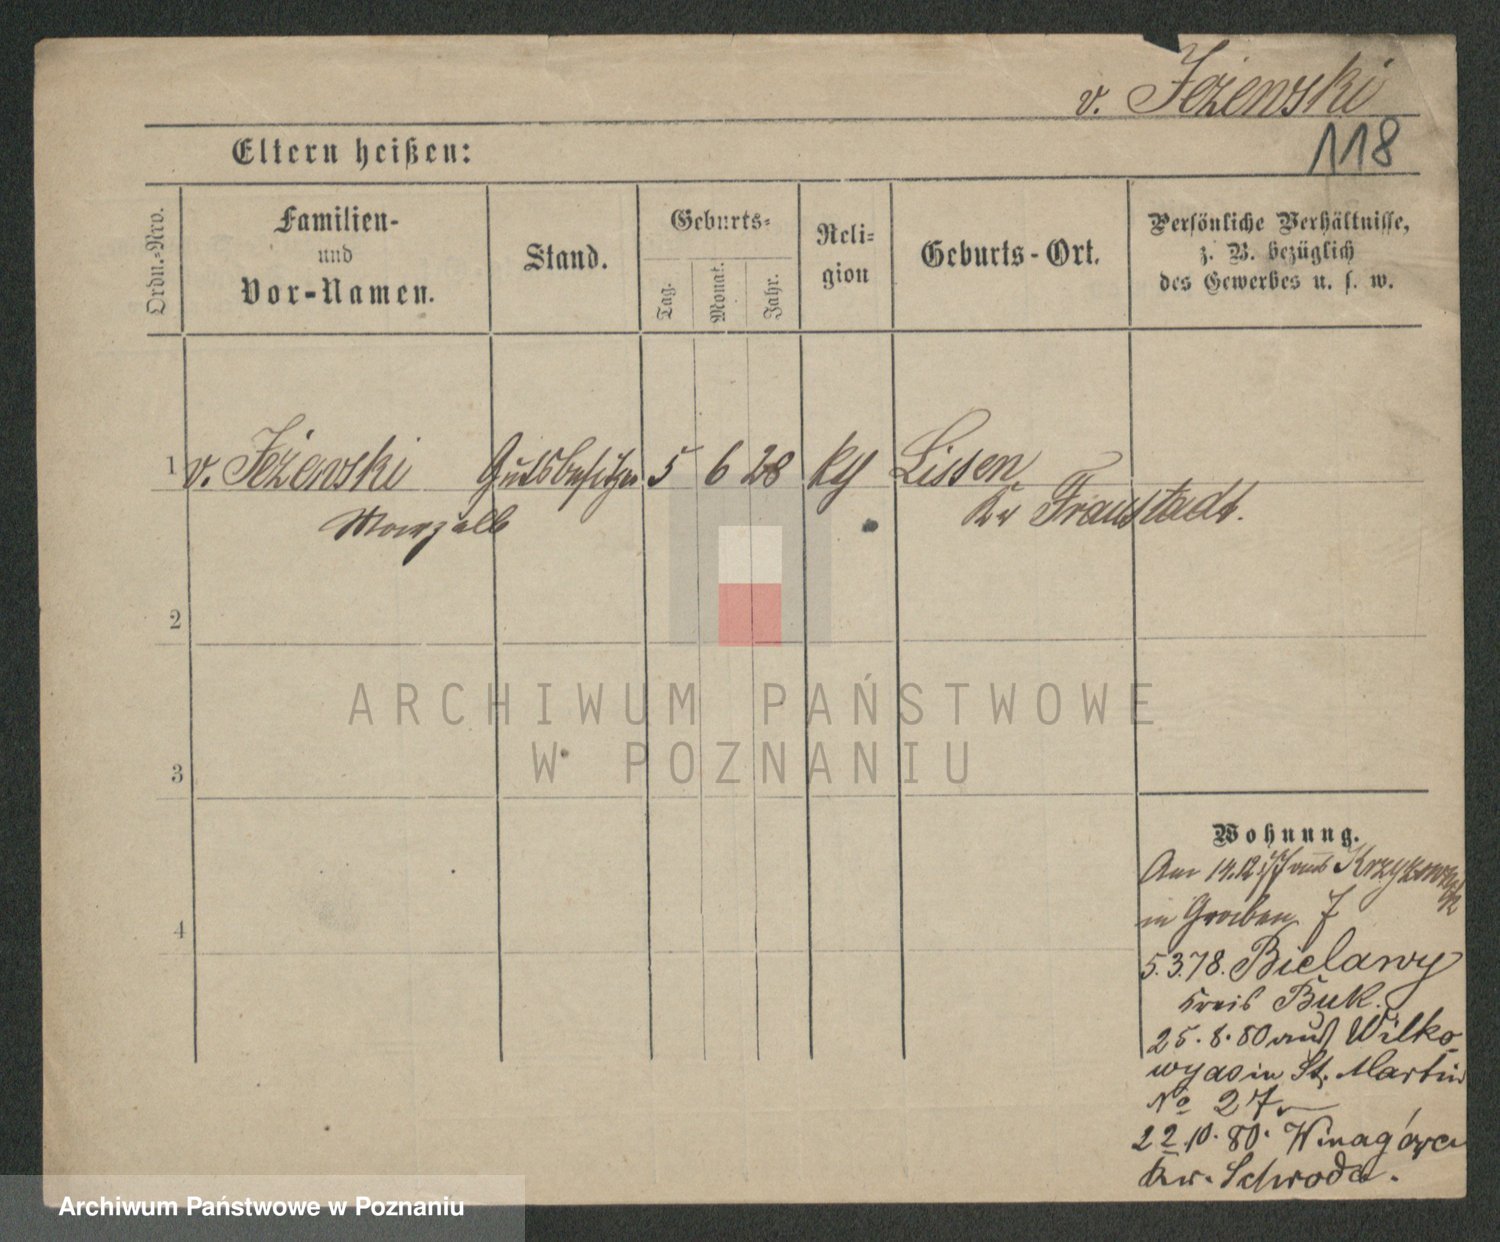 v. Jeżewski
118
Eltern heißen:
Ordn.-Nro.
Familien-
und
Vor-Namen.
Stand.
Geburts-
Tag.
Monat.
Jahr.
Reli-
gion
Geburts-Ort.
Persönliche Verhältnisse,
z. B. bezüglich
des Gewerbes u. s. w.
1 v. Jeżewski Gutsbesitzer 5 6 28 Lissen
Kr Fraustadt.
2
ARCHIWUM PAŃSTWOWE
W POZNANIU
3
Wohnung.
in Graben 7
4
5.3.78. Bielawy
Kreis Buk.
25.8.80 aus Wilko-
in St. Martin
No 27
22.10.80. Winagóra
Kr. Schroda.
Archiwum Państwowe w Poznaniu